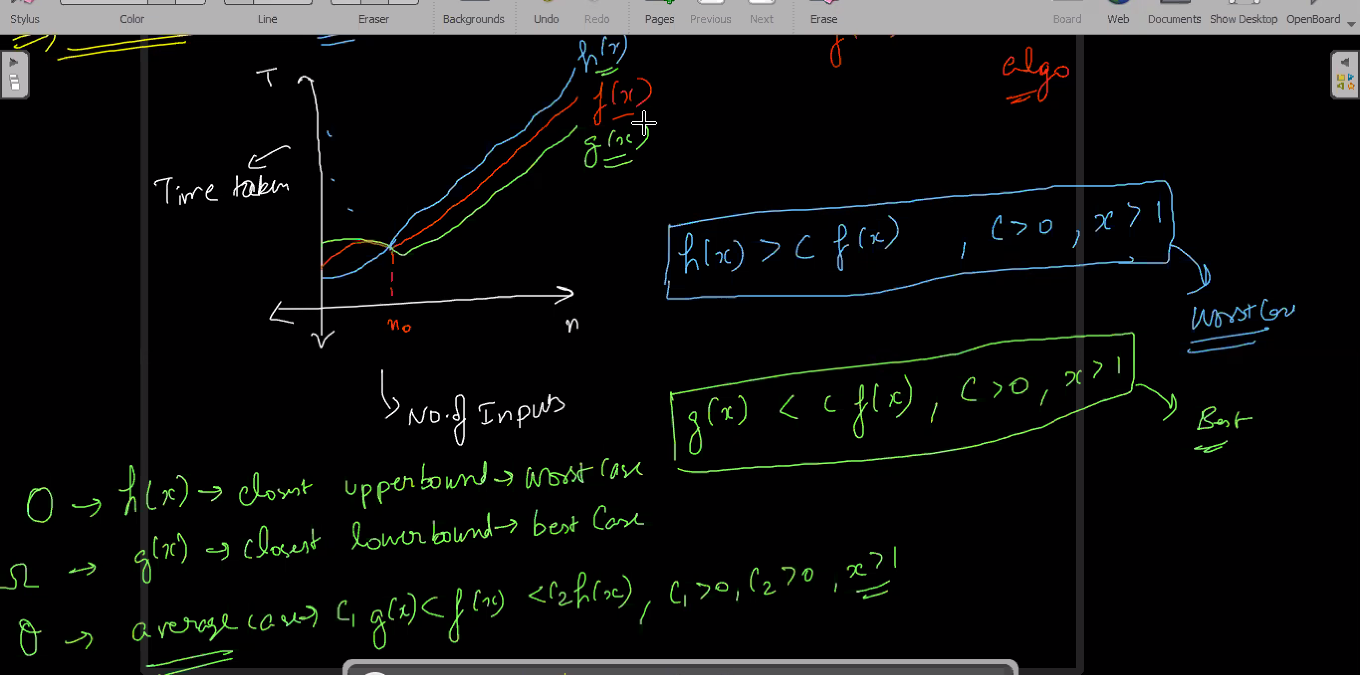 Stylus Color Line Eraser Backgrounds Undo Redo Pages Previous Next Erase Board Web Documents Show Desktop OpenBoard
h(x)
T
f(x)
algo
g(x)
Time taken
h(x) > c f(x) , c>0 , x>1
n₀
n
Worst
g(x) < c f(x) , c>0, x>1
No. of Inputs
Best
O → h(x) → closest upperbound → worst case
Ω → g(x) → closest lowerbound → best case
θ → average case → c₁ g(x) < f(x) < c₂ h(x) , c₁ >0, c₂ >0 , x>1